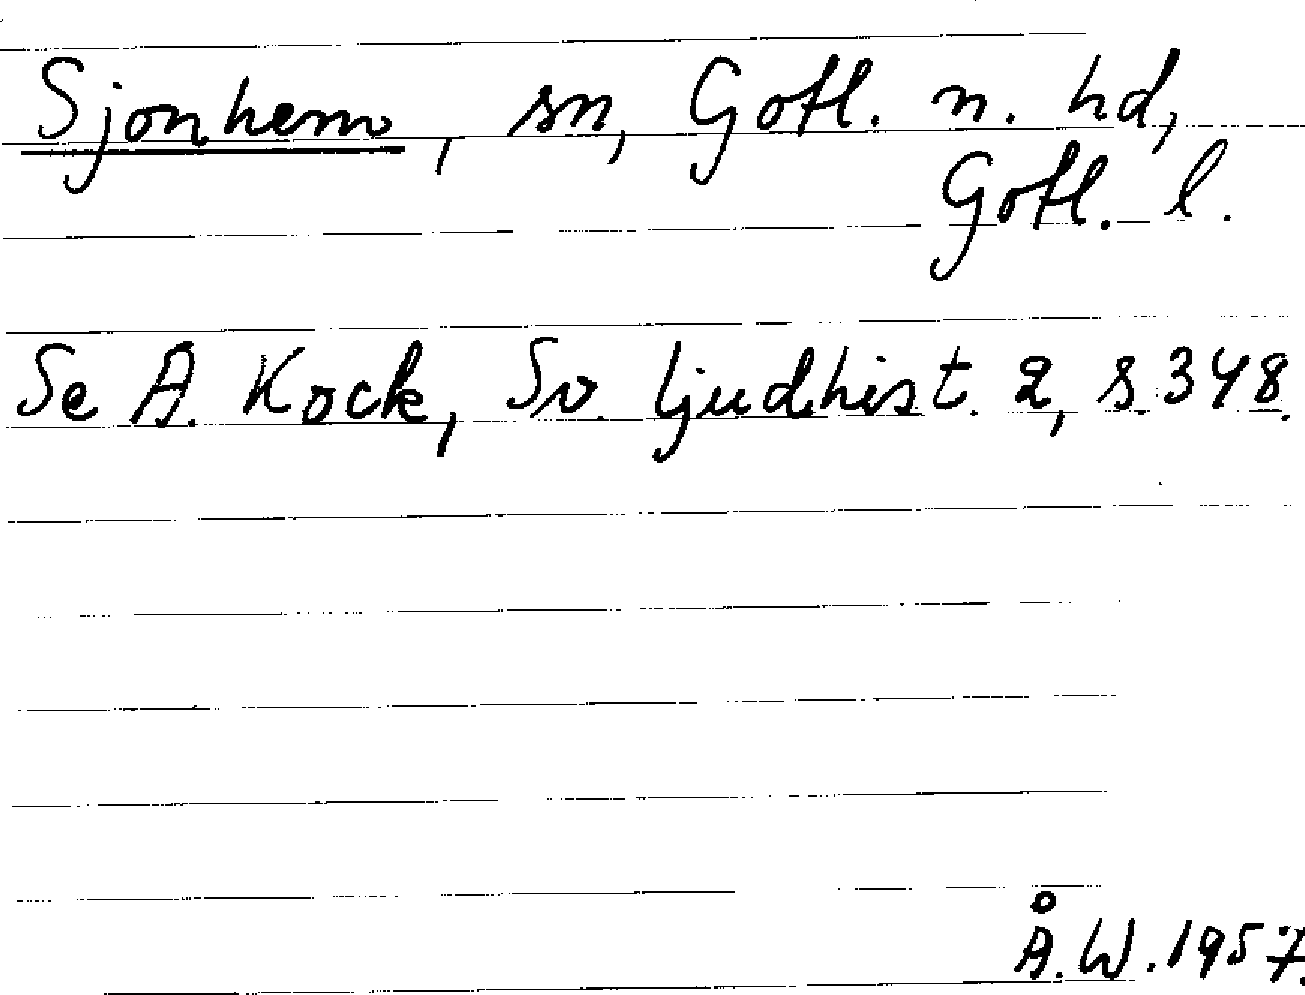 Sjonhem, sn, Gotl. n. hd,
Gotl. l.
Se A. Kock, Sv. ljudhist. 2, s. 348.
Å. W. 1957.